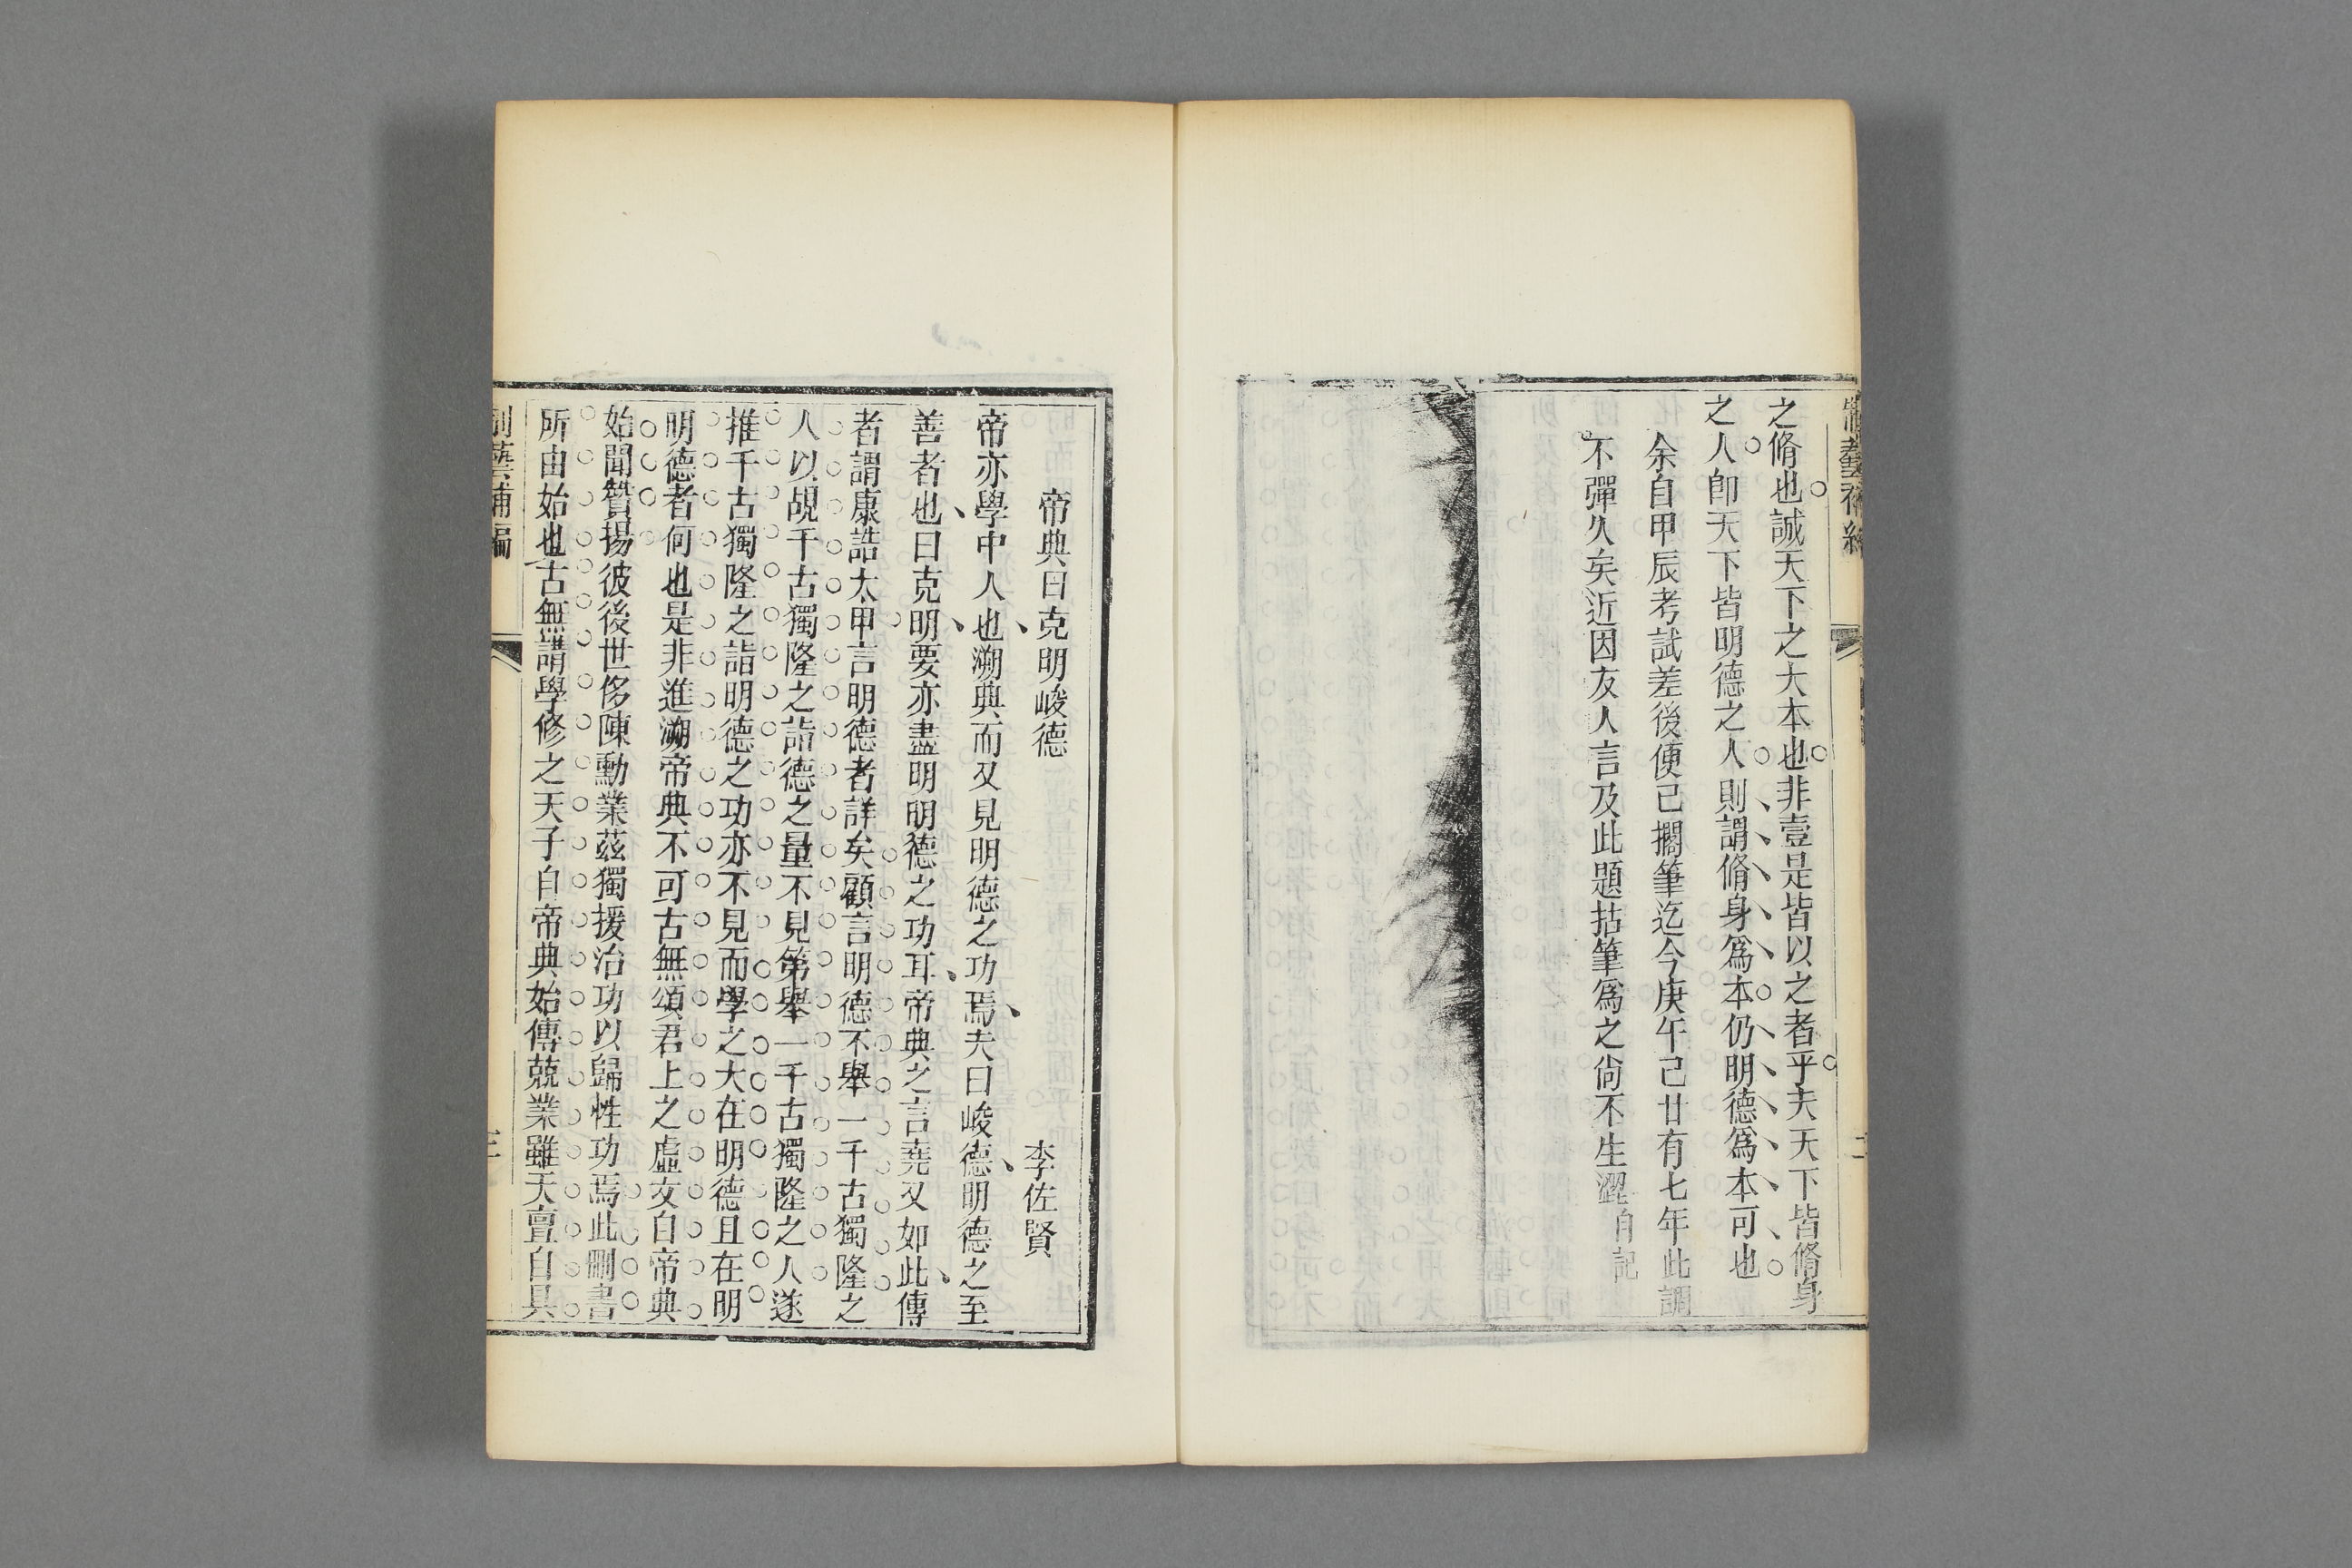 之脩也誠天下之大本也非壹是皆以之者乎夫天下皆脩身
之人卽天下皆明德之人則謂脩身爲本仍明德爲本可也
余自甲辰考試差後便已擱筆迄今庚午已廿有七年此調
不彈久矣近因友人言及此題拈筆爲之尙不生澀自記
帝典曰克明峻德
李佐賢
帝亦學中人也溯典而又見明德之功焉夫曰峻德明德之至
善者也曰克明要亦盡明明德之功耳帝典之言堯又如此傳
者謂康誥太甲言明德者詳矣顧言明德不舉一千古獨隆之
人以覘千古獨隆之詣德之量不見第舉一千古獨隆之人遂
推千古獨隆之詣明德之功亦不見而學之大在明德且在明
明德者何也是非進溯帝典不可古無頌君上之虛文自帝典
始聞贊揚彼後世侈陳勳業茲獨援治功以歸性功焉此刪書
所由始也古無講學修之天子自帝典始傳兢業雖天亶自具
制藝補編
三